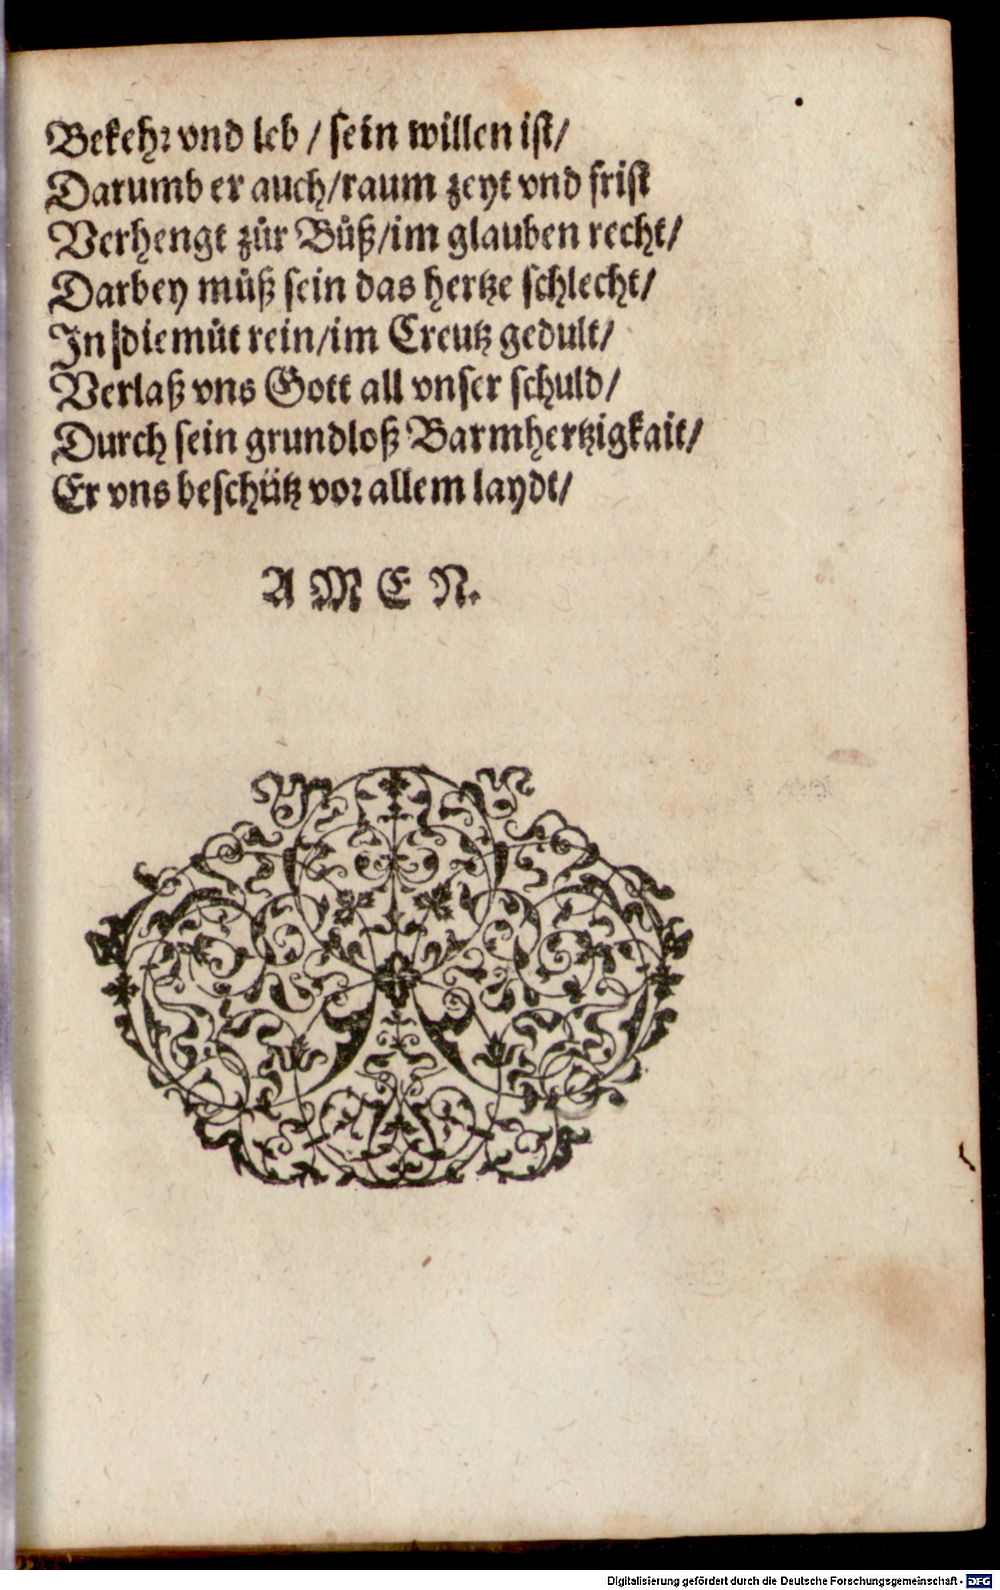 Bekehr vnd leb / sein willen ist/
Darumb er auch/raum zeyt vnd frist
Verhengt zůr Bůß/im glauben recht/
Darbey můß sein das hertze schlecht/
In diemůt rein/im Creutz gedult/
Verlaß vns Gott all vnser schuld/
Durch sein grundloß Barmhertzigkait/
Er vns beschütz vor allem laydt/
A M E N.
Digitalisierung gefördert durch die Deutsche Forschungsgemeinschaft - DFG